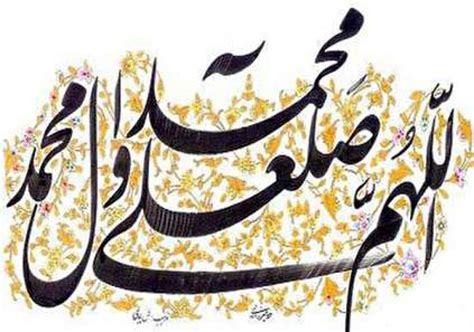 اللّهُمَّ صل علی محمد وآل محمد